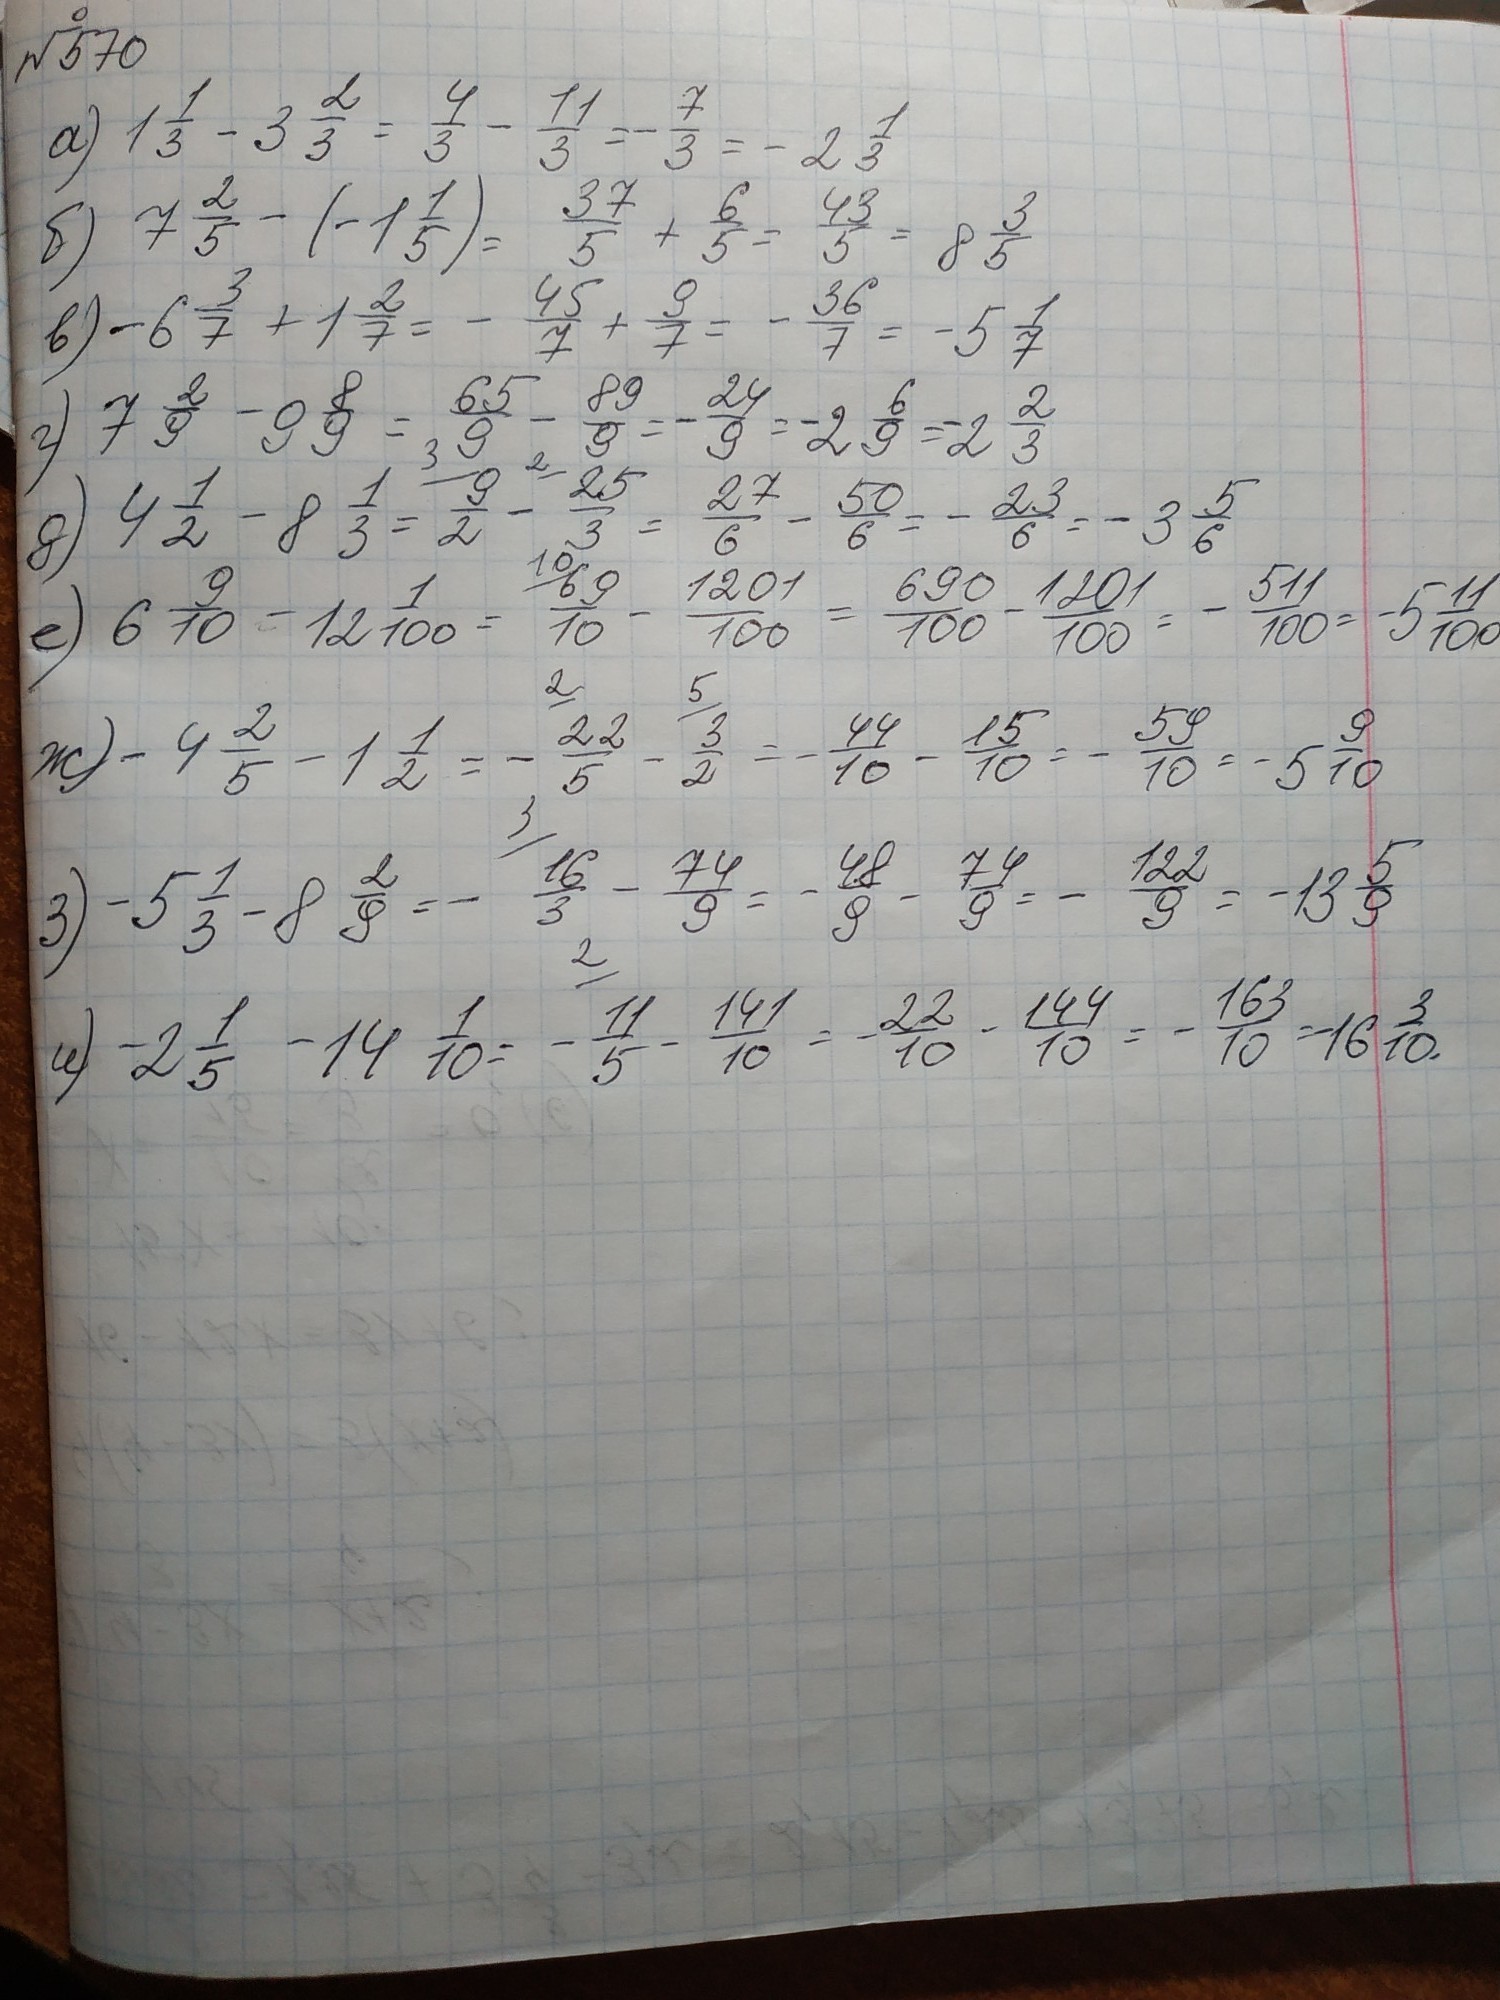 № 570
а) 1 1/3 - 3 2/3 = 4/3 - 11/3 = - 7/3 = - 2 1/3
б) 7 2/5 - (-1 1/5) = 37/5 + 6/5 = 43/5 = 8 3/5
в) - 6 3/7 + 1 2/7 = - 45/7 + 9/7 = - 36/7 = - 5 1/7
г) 7 2/9 - 9 8/9 = 65/9 - 89/9 = - 24/9 = - 2 6/9 = - 2 2/3
д) 4 1/2 - 8 1/3 = ³⁄ 9/2 - ²⁄ 25/3 = 27/6 - 50/6 = - 23/6 = - 3 5/6
е) 6 9/10 - 12 1/100 = ¹⁰⁄ 69/10 - 1201/100 = 690/100 - 1201/100 = - 511/100 = - 5 11/100
ж) - 4 2/5 - 1 1/2 = - ²⁄ 22/5 - ⁵⁄ 3/2 = - 44/10 - 15/10 = - 59/10 = - 5 9/10
з) - 5 1/3 - 8 2/9 = - ³⁄ 16/3 - 74/9 = - 48/9 - 74/9 = - 122/9 = - 13 5/9
и) - 2 1/5 - 14 1/10 = - ²⁄ 11/5 - 141/10 = - 22/10 - 144/10 = - 163/10 = - 16 3/10.